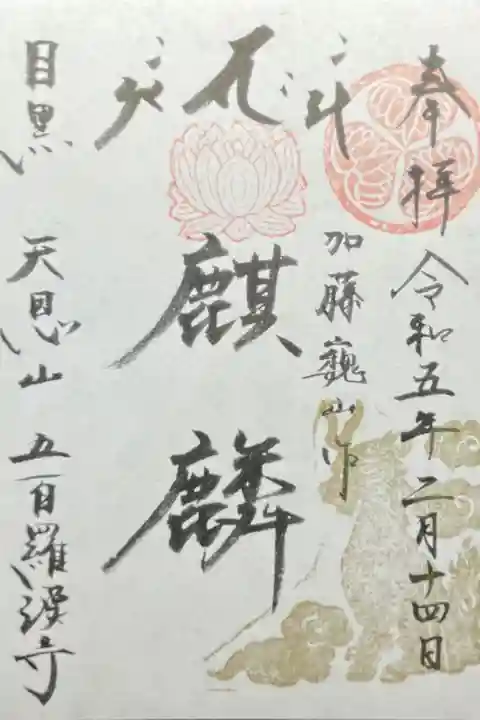 奉拝 令和五年二月十四日
加藤巍山作
麒麟
目黒 天恩山 五百羅漢寺